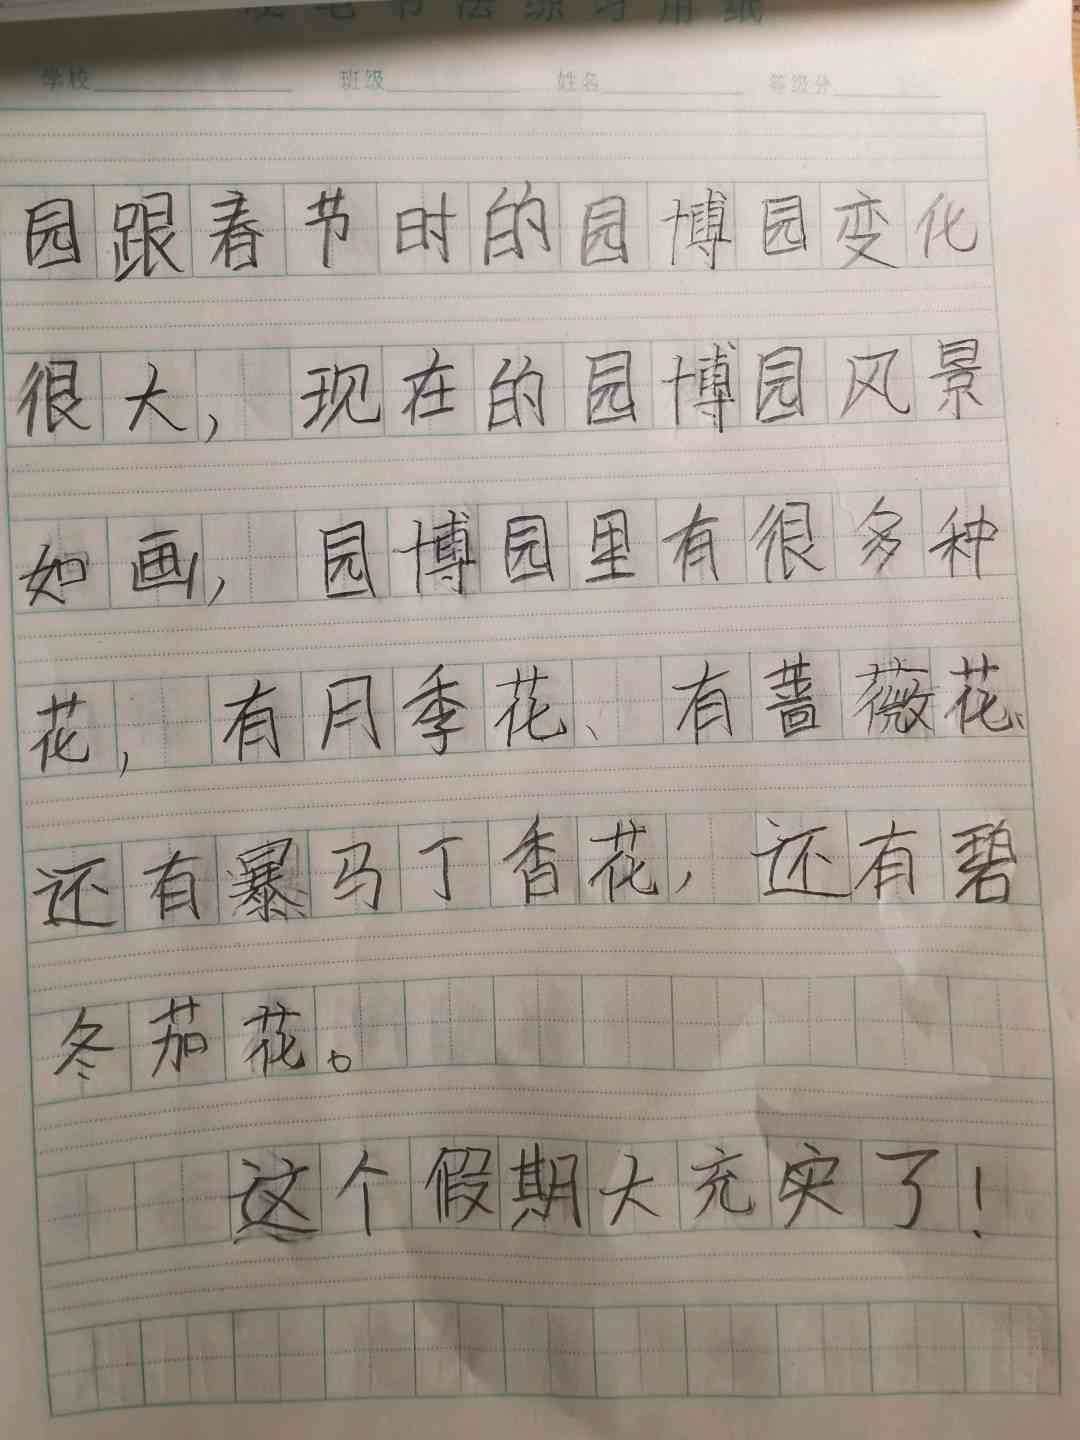 硬笔书法练习用纸
学校 班级 姓名 等级分
园跟春节时的园博园变化
很大，现在的园博园风景
如画，园博园里有很多种
花，有月季花、有蔷薇花、
还有暴马丁香花，还有碧
冬茄花。
这个假期大充实了！